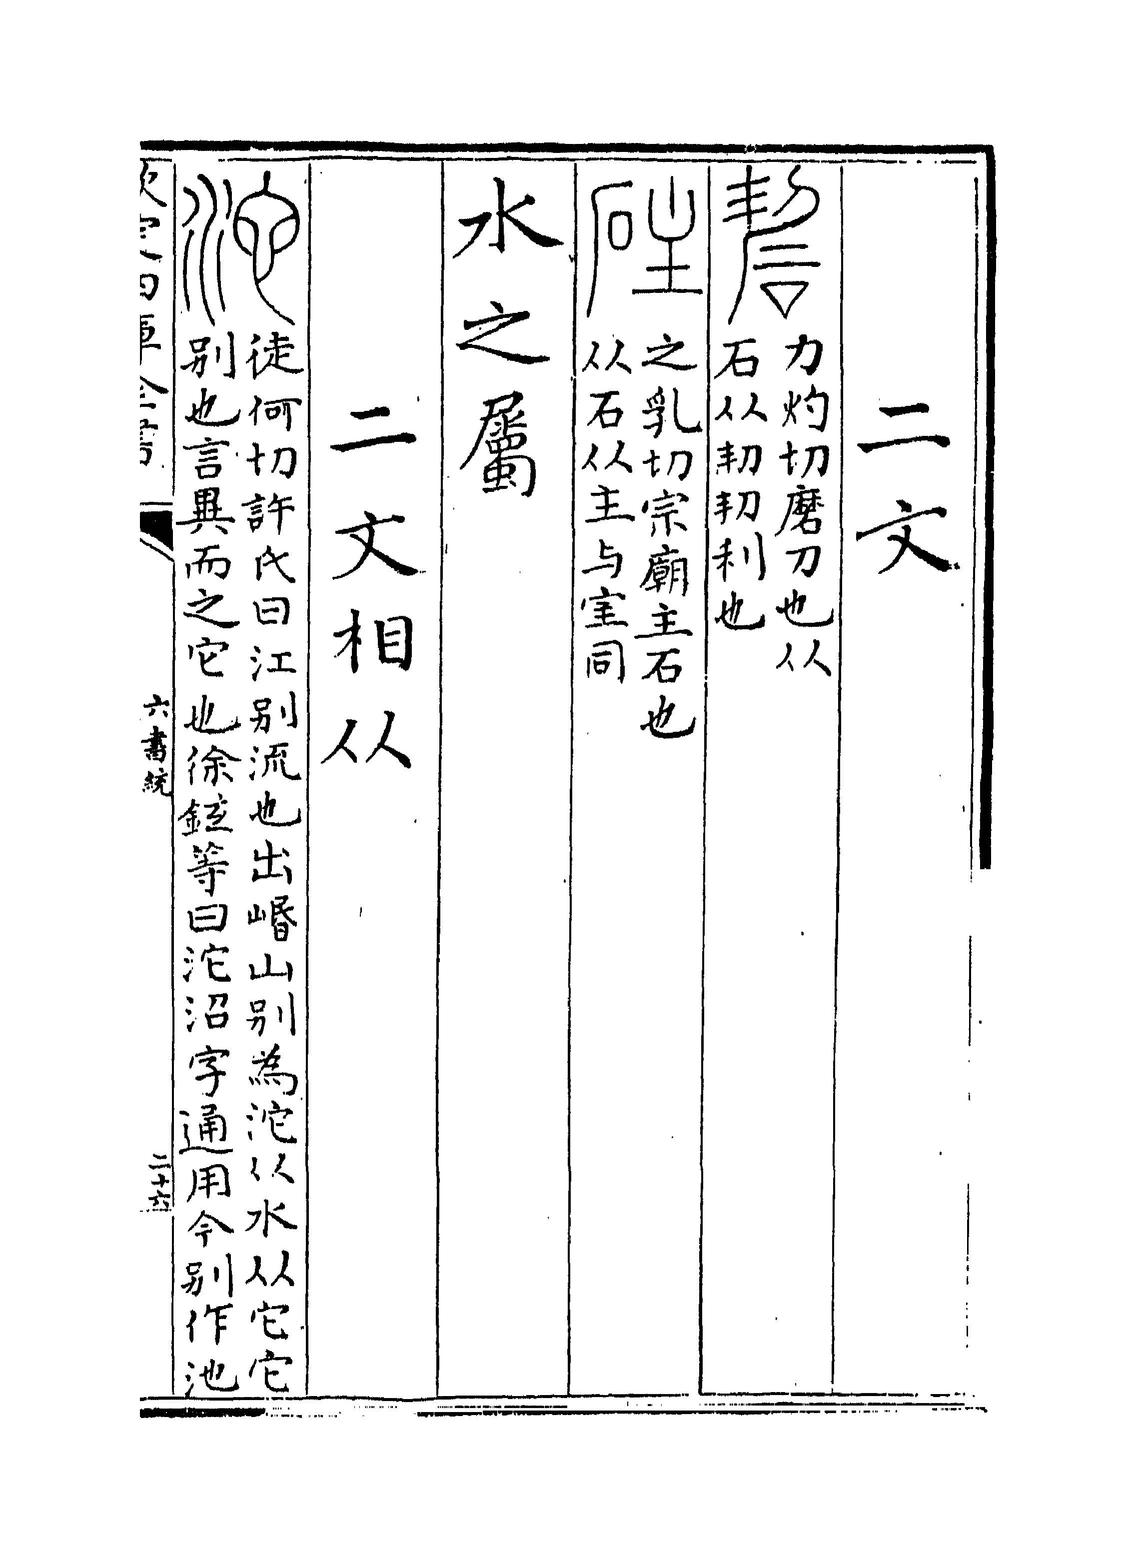 二文
力灼切磨刀也从
石从㓞㓞利也
之乳切宗廟主石也
从石从主与宔同
水之屬
二文相从
沱
徒何切許氏曰江别流也出㟭山别為沱从水从它它
别也言異而之它也徐鉉等曰沱沼字通用今别作池
欽定四庫全書
六書統
二十六